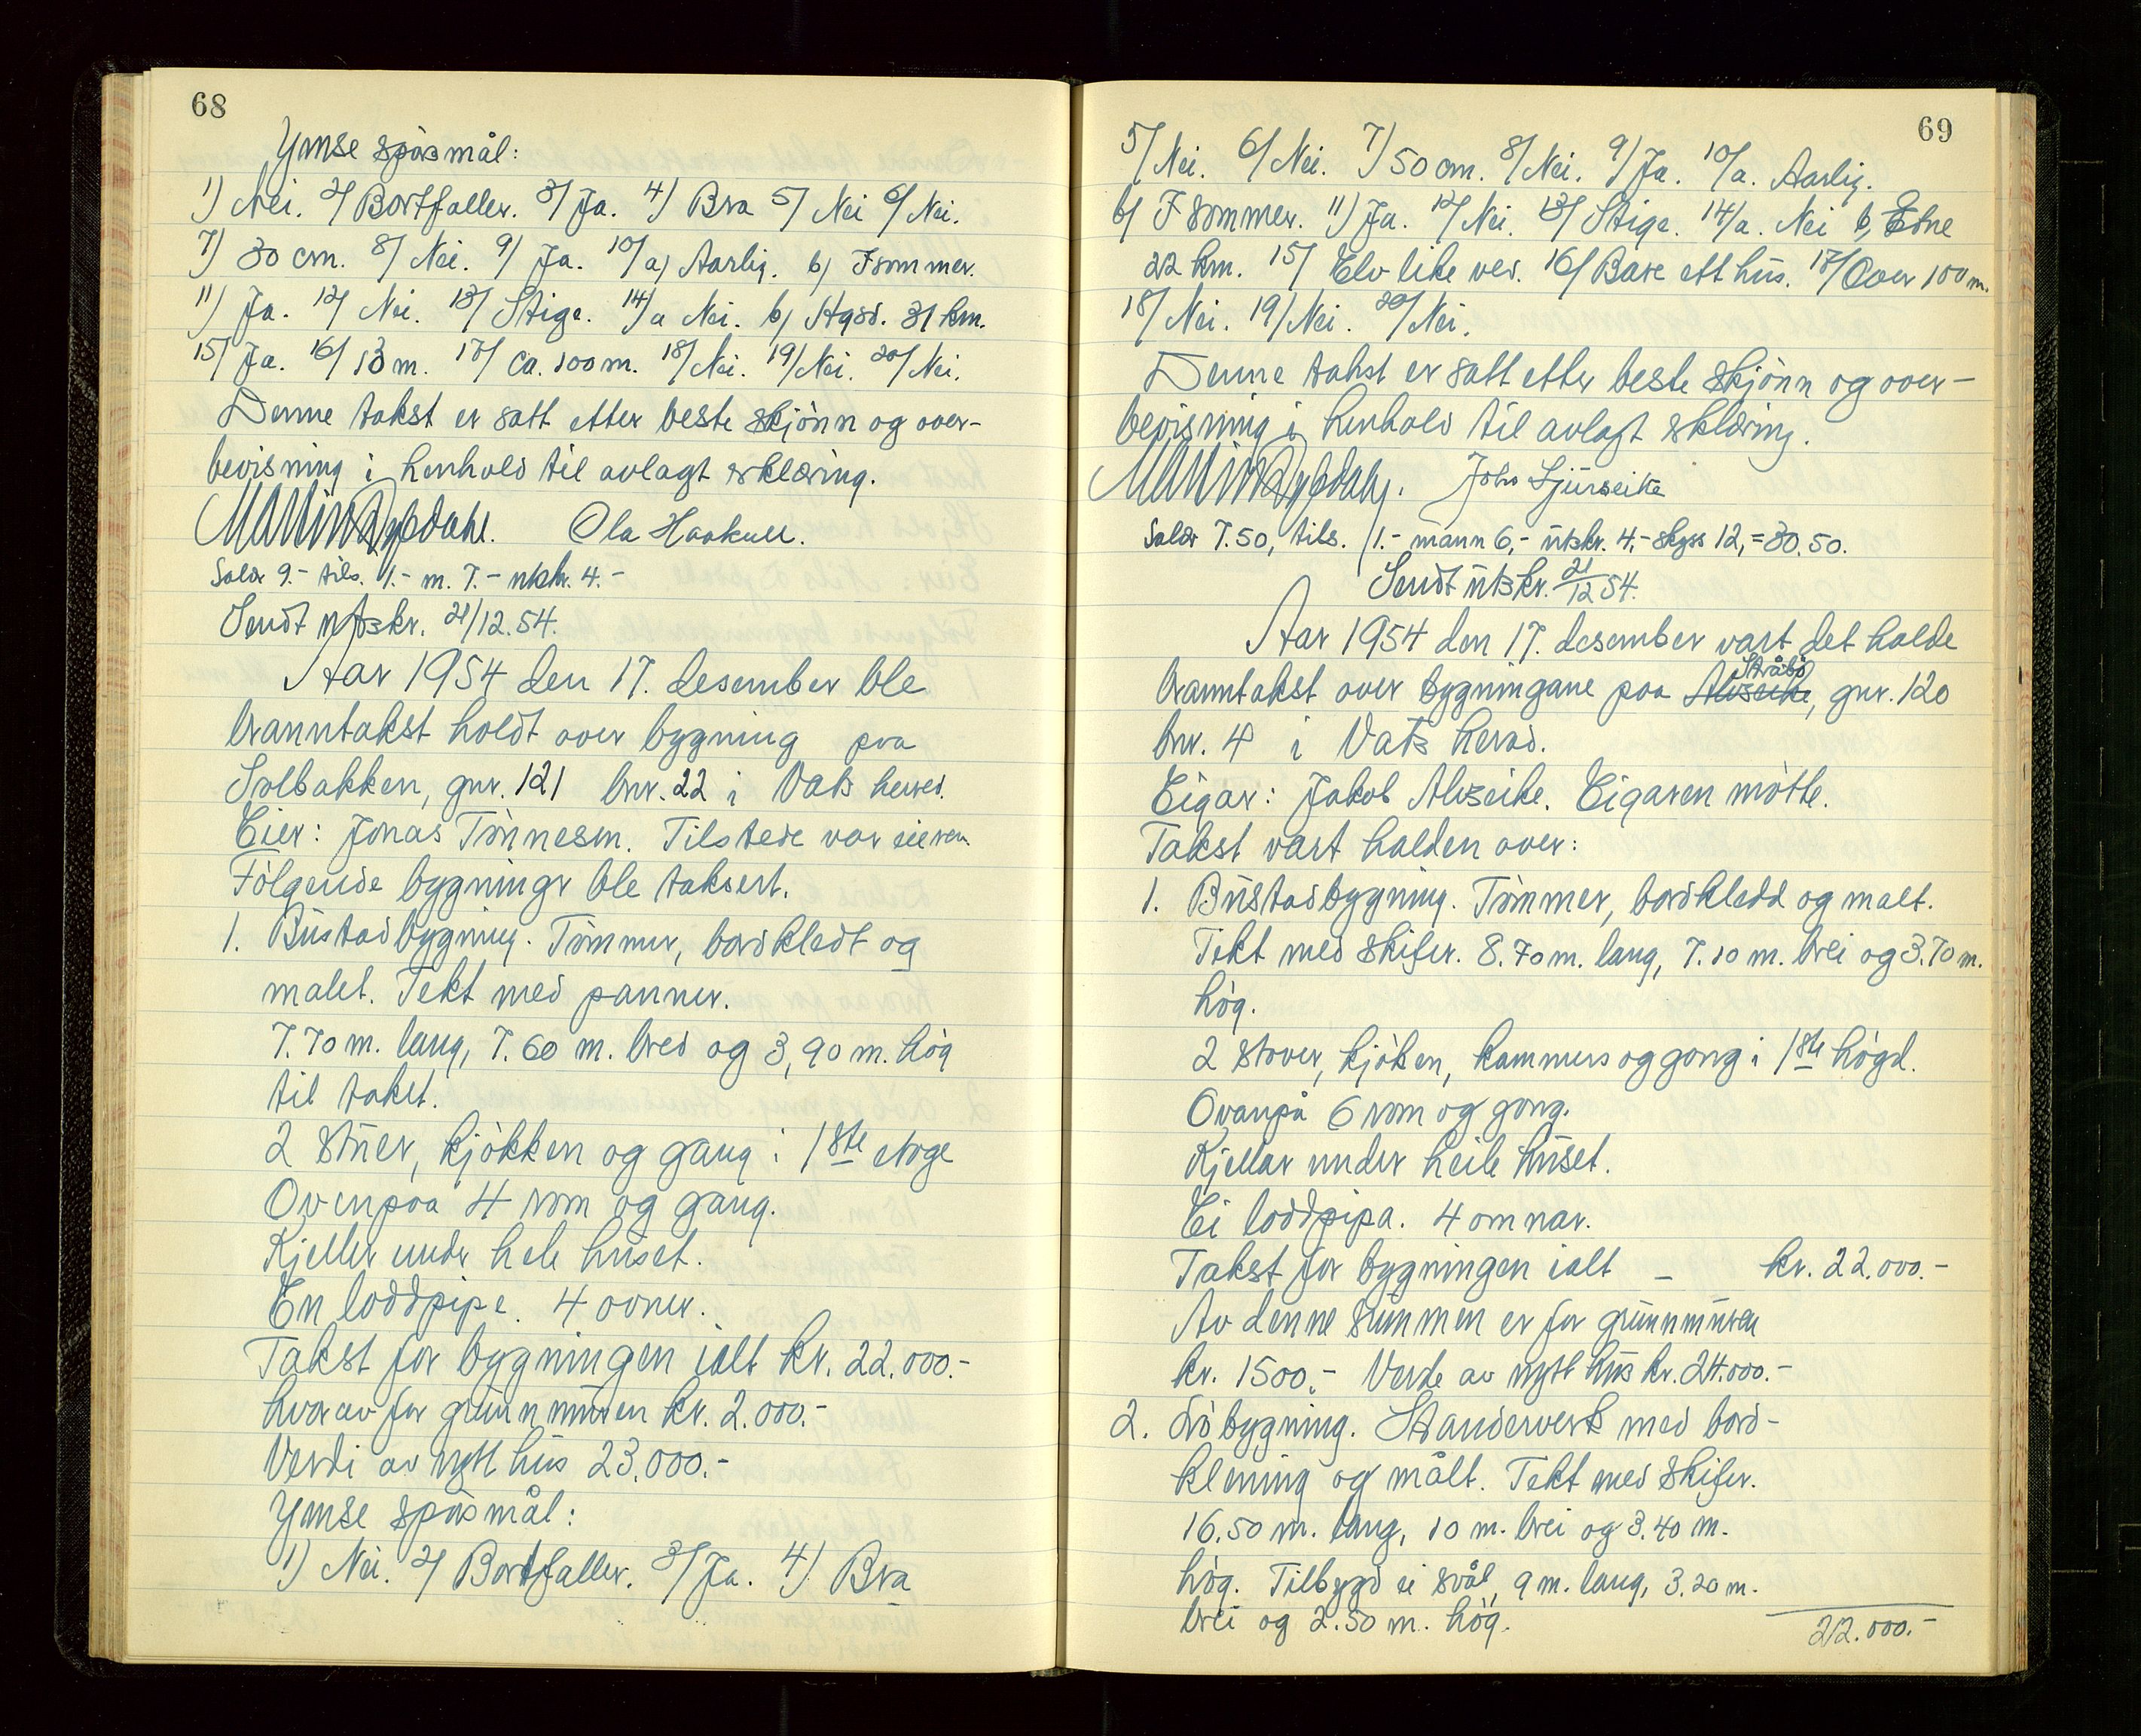 68
Ymse spörsmål:
1) Nei. 2/ Bortfaller. 3/ Ja. 4) Bra 5/ Nei 6/ Nei.
7) 30 cm. 8/ Nei. 9/ Ja. 10/a) Aarlig. b) I sommer.
11) Ja. 12/ Nei. 13/ Stige. 14/a Nei. b) Hgsd. 31 km.
15/ Ja. 16/ 13 m. 17/ ca. 100 m. 18/ Nei. 19/ Nei. 20/ Nei.
Denne takst er satt etter beste skjönn og over-
bevisning i henhold til avlagt erklæring.
Martin Dybdahl. Ola Haakull.
Solär 9.- tils. 1.- m. 7.- utskr. 4.-
Sendt utskr. 21/12.54.
Aar 1954 den 17. desember ble
branntakst holdt over bygning paa
Solbakken, gnr. 121 bnr. 22 i Vats herred.
Eier: Jonas Tönnesen. Tilstede var eieren
Fölgende bygninger ble taksert.
1. Bustadbygning. Tömmer, bordkledt og
malet. Tekt med panner.
7.70 m. lang, 7.60 m. bred og 3,90 m. hög
til taket.
2 stuer, kjökken og gang i 1ste etage
Ovenpaa 4 rom og gang.
Kjeller under hele huset.
En loddpipe. 4 ovner.
Takst for bygningen ialt kr. 22.000.-
hvorav for grunnmuren kr. 2.000.-
Verdi av nytt hus 23.000.-
Ymse spörsmål:
1) Nei. 2/ Bortfaller. 3/ Ja. 4/ Bra
69
5/ Nei. 6/ Nei. 7) 50 cm. 8/ Nei. 9/ Ja. 10/a. Aarlig.
b) I sommer. 11) Ja. 12/ Nei. 13/ Stige. 14/a. Nei b, Etne
22 km. 15/ Elv like ved. 16/ Bare ett hus. 17/ Over 100 m.
18/ Nei. 19/ Nei. 20/ Nei.
Denne takst er satt etter beste skjönn og over-
bevisning i henhold til avlagt erklæring.
Martin Dybdahl. Johs Sjurseike
Solär 7.50, tils. 1.- mann 6,- utskr. 4,- skyss 12,=30.50.
Sendt utskr. 21/12 54.
Aar 1954 den 17. desember vart det halde
Stråbö
branntakst over bygningane paa Alvseike, gnr. 120
bnr. 4 i Vats herad.
Eigar: Jakob Alvseike. Eigaren mötte.
Takst vart halden over:
1. Bustadbygning. Tömmer, bordkledd og malt.
Tekt med skifer. 8.70 m. lang, 7.10 m. brei og 3.70 m.
hög.
2 stover, kjöken, kammers og gong i 1ste högd.
Ovanpå 6 rom og gong.
Kjellar under heile huset.
Ei loddpipa. 4 omnar.
Takst for bygningen ialt - kr. 22.000.-
Av denne summen er for grunnmuren
kr. 1500.- Verde av nytt hus kr. 24.000.-
2. Löbygning. Standerverk med bord-
klening og målt. Tekt med skifer.
16.50 m. lang, 10 m. brei og 3.40 m.
hög. Tilbygd ei svål, 9 m. lang, 3.20 m.
brei og 2.50 m. hög.
22.000.-